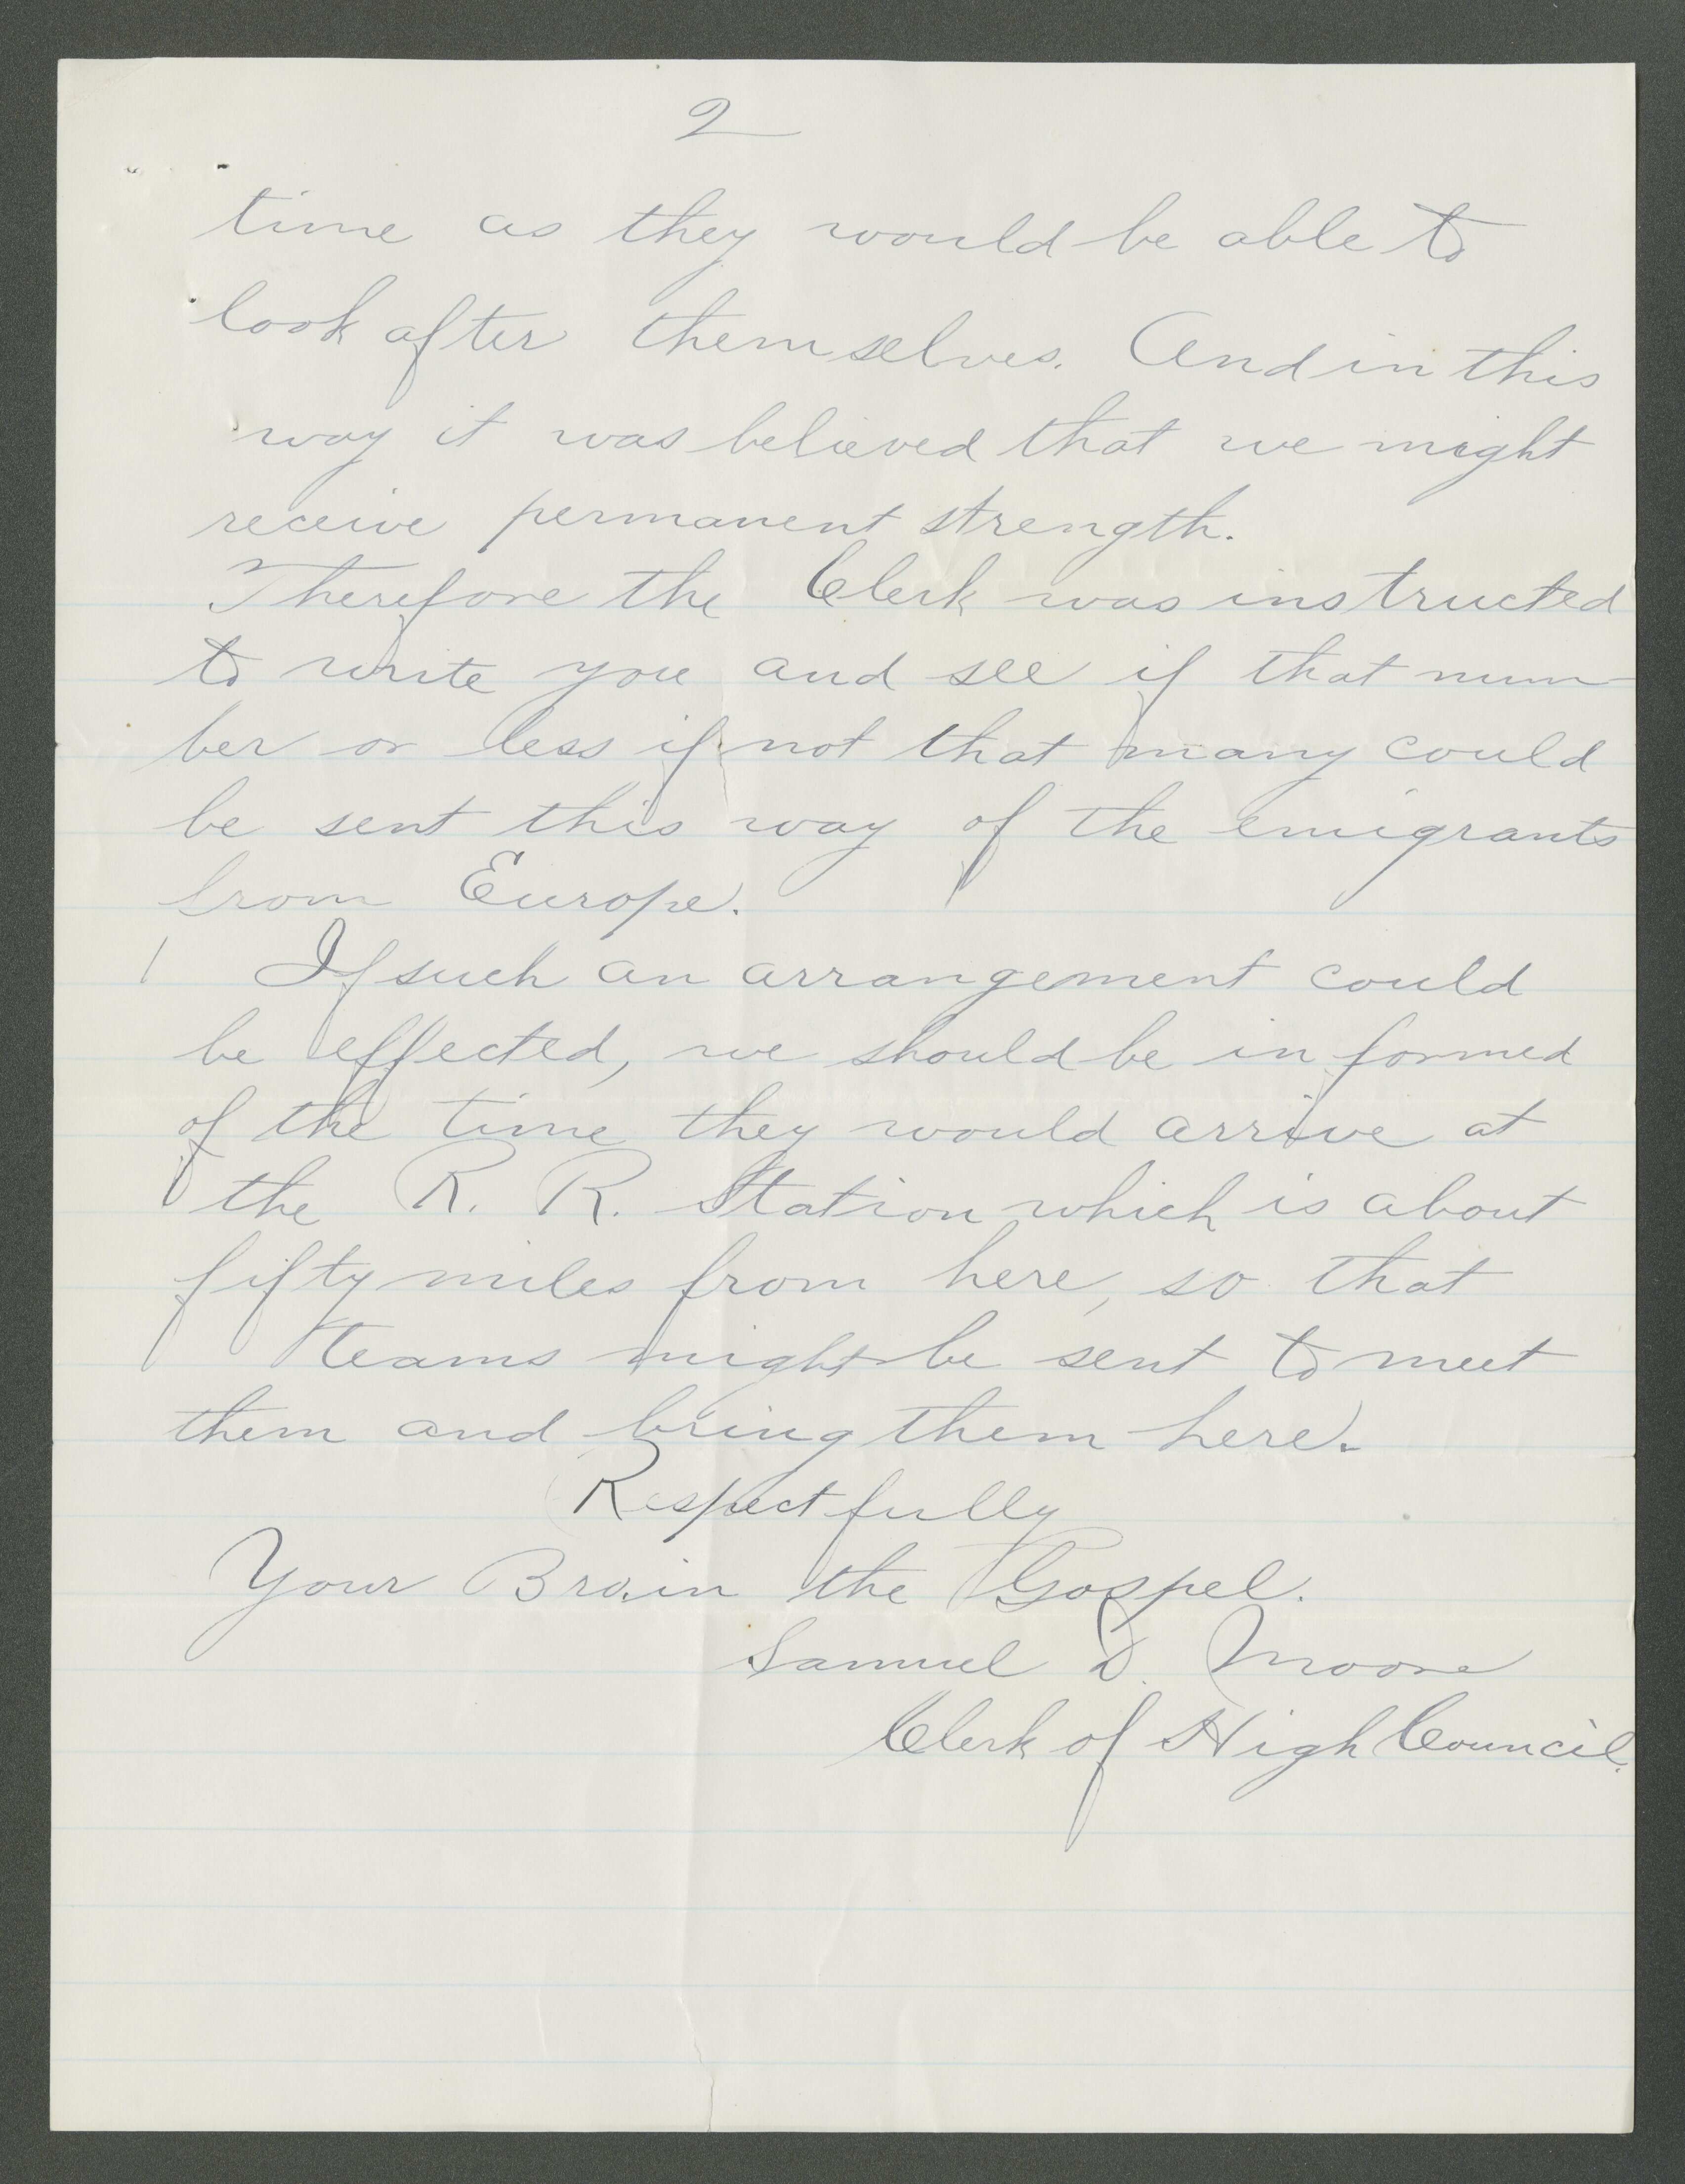 2
time as they would be able to
look after themselves. And in this
way it was believed that we might
receive permanent strength.
Therefore the Clerk was instructed
to write you and see if that num
ber or less if not that many could
be sent this way of the emigrants
from Europe.
If such an arrangement could
be effected, we should be informed
of the time they would arrive at
the R. R. Station which is about
fifty miles from here, so that
teams might be sent to meet
them and bring them here.
Respectfully
Your Bro. in the Gospel.
Samuel D. Moore
Clerk of High Council.